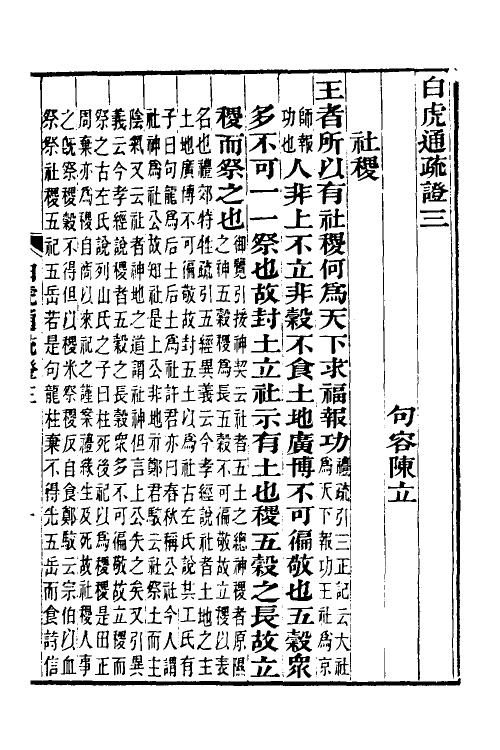 白虎通疏證三
句容陳立
社稷
王者所以有社稷何爲天下求福報功禮疏引三正記云大社
爲天下報功王社爲京
師報
功也人非上不立非穀不食土地廣博不可徧敬也五穀衆
多不可一一祭也故封土立社示有土也稷五穀之長故立
稷而祭之也御覽引援神契云社者五土之總神稷者原隰之
神五穀稷爲長五穀不可徧敬故立稷以表
名也禮郊特牲疏引五經異義云今孝經說社者土地之主
土地廣博不可徧敬故封五土以爲社古左氏說共工氏有
子曰句龍爲后土后土爲社許君亦曰春秋稱公社今人謂
社神爲社公故知社是上公非地示鄭君駁云社祭土而主
陰氣又云社者神地之道謂社神但言上公失之矣又引異
義云今孝經說稷者五穀之長穀衆多不可徧敬故立稷而
祭之古左氏說列山氏之子曰柱死後祀以爲稷稷是田正
周棄亦爲稷自商以來祀之謹案禮緣生及死故社稷人事
之旣祭稷穀不得但以稷米祭稷反自食鄭駁云宗伯以血
祭祭社稷五祀五岳若是句龍柱棄不得先五岳而食詩信
白虎通疏證三
一